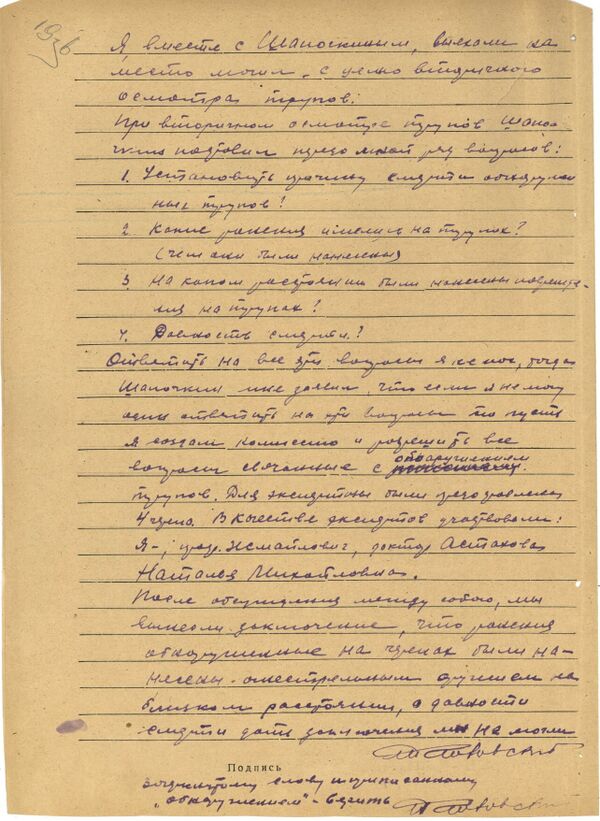 Я вместе с Шапочкиным, выехали на
место могил, с целю вторичного
осмотра трупов.
При вторичном осмотре трупов Шапо-
чкин поставил предо мной ряд вопросов:
1. Установить причину смерти обнаружен
ных трупов?
2. Какие ранения имелись на трупах?
(чем они были нанесены)
3. На каком расстоянии были нанесены поврежде-
ния на трупах?
4. Давность смерти?
Ответить на все эти вопросы я не мог, тогда
Шапочкин мне заявил, что если я не могу
один ответить на эти вопросы то пусть
я создам комиссию и разрешить все
вопросы связанные с обнаружением
трупов. Для экспертизы были
4 черепа. В качестве экспертов участвовали:
Я-, проф. Исмайлович, доктор Астахова
Наталья Михайловна.
После обсуждения между собою, мы
вынесли заключение, что ранения
обнаруженные на черепах были на-
несены огнестрельным оружием на
близком расстоянии, о давности
смерти дать заключения мы не могли
Подпись
зачеркнутому слову и надписанному
„обнаружением" - верить